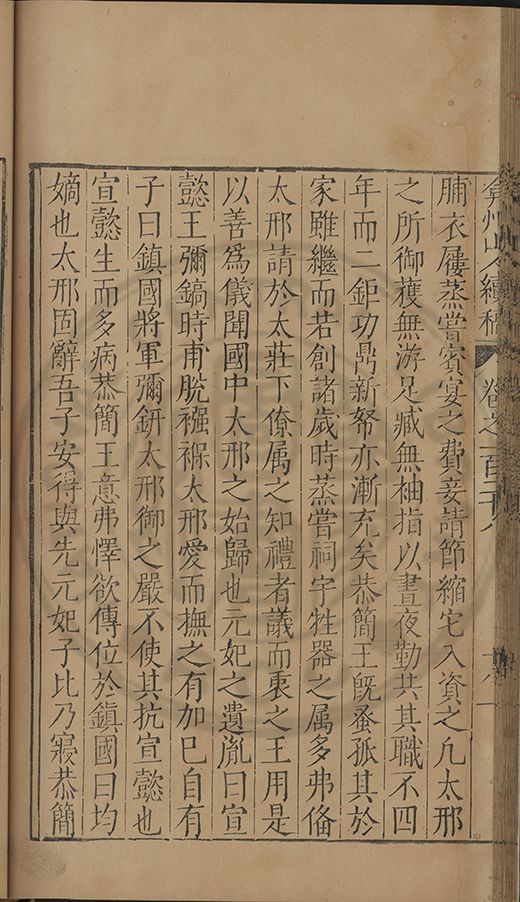 弇州山人續稿 卷之一百
脯衣屨蒸嘗賓宴之費妾請節縮宅入資之凡太邢
之所御獲無游足臧無袖指以晝夜勤共其職不四
年而二鉅功鼎新帑亦漸充矣恭簡王旣蚤孤其於
家雖繼而若創諸歲時蒸嘗祠宇牲器之属多弗俻
太邢請於太莊下僚属之知禮者議而衷之王用是
以善爲儀聞國中太邢之始歸也元妃之遺胤曰宣
懿王彌鎬時甫脫襁褓太邢愛而撫之有加巳自有
子曰鎮國將軍彌鈃太邢御之嚴不使其抗宣懿也
宣懿生而多病恭簡王意弗懌欲傳位於鎮國曰均
嫡也太邢固辭吾子安得與先元妃子比乃寢恭簡